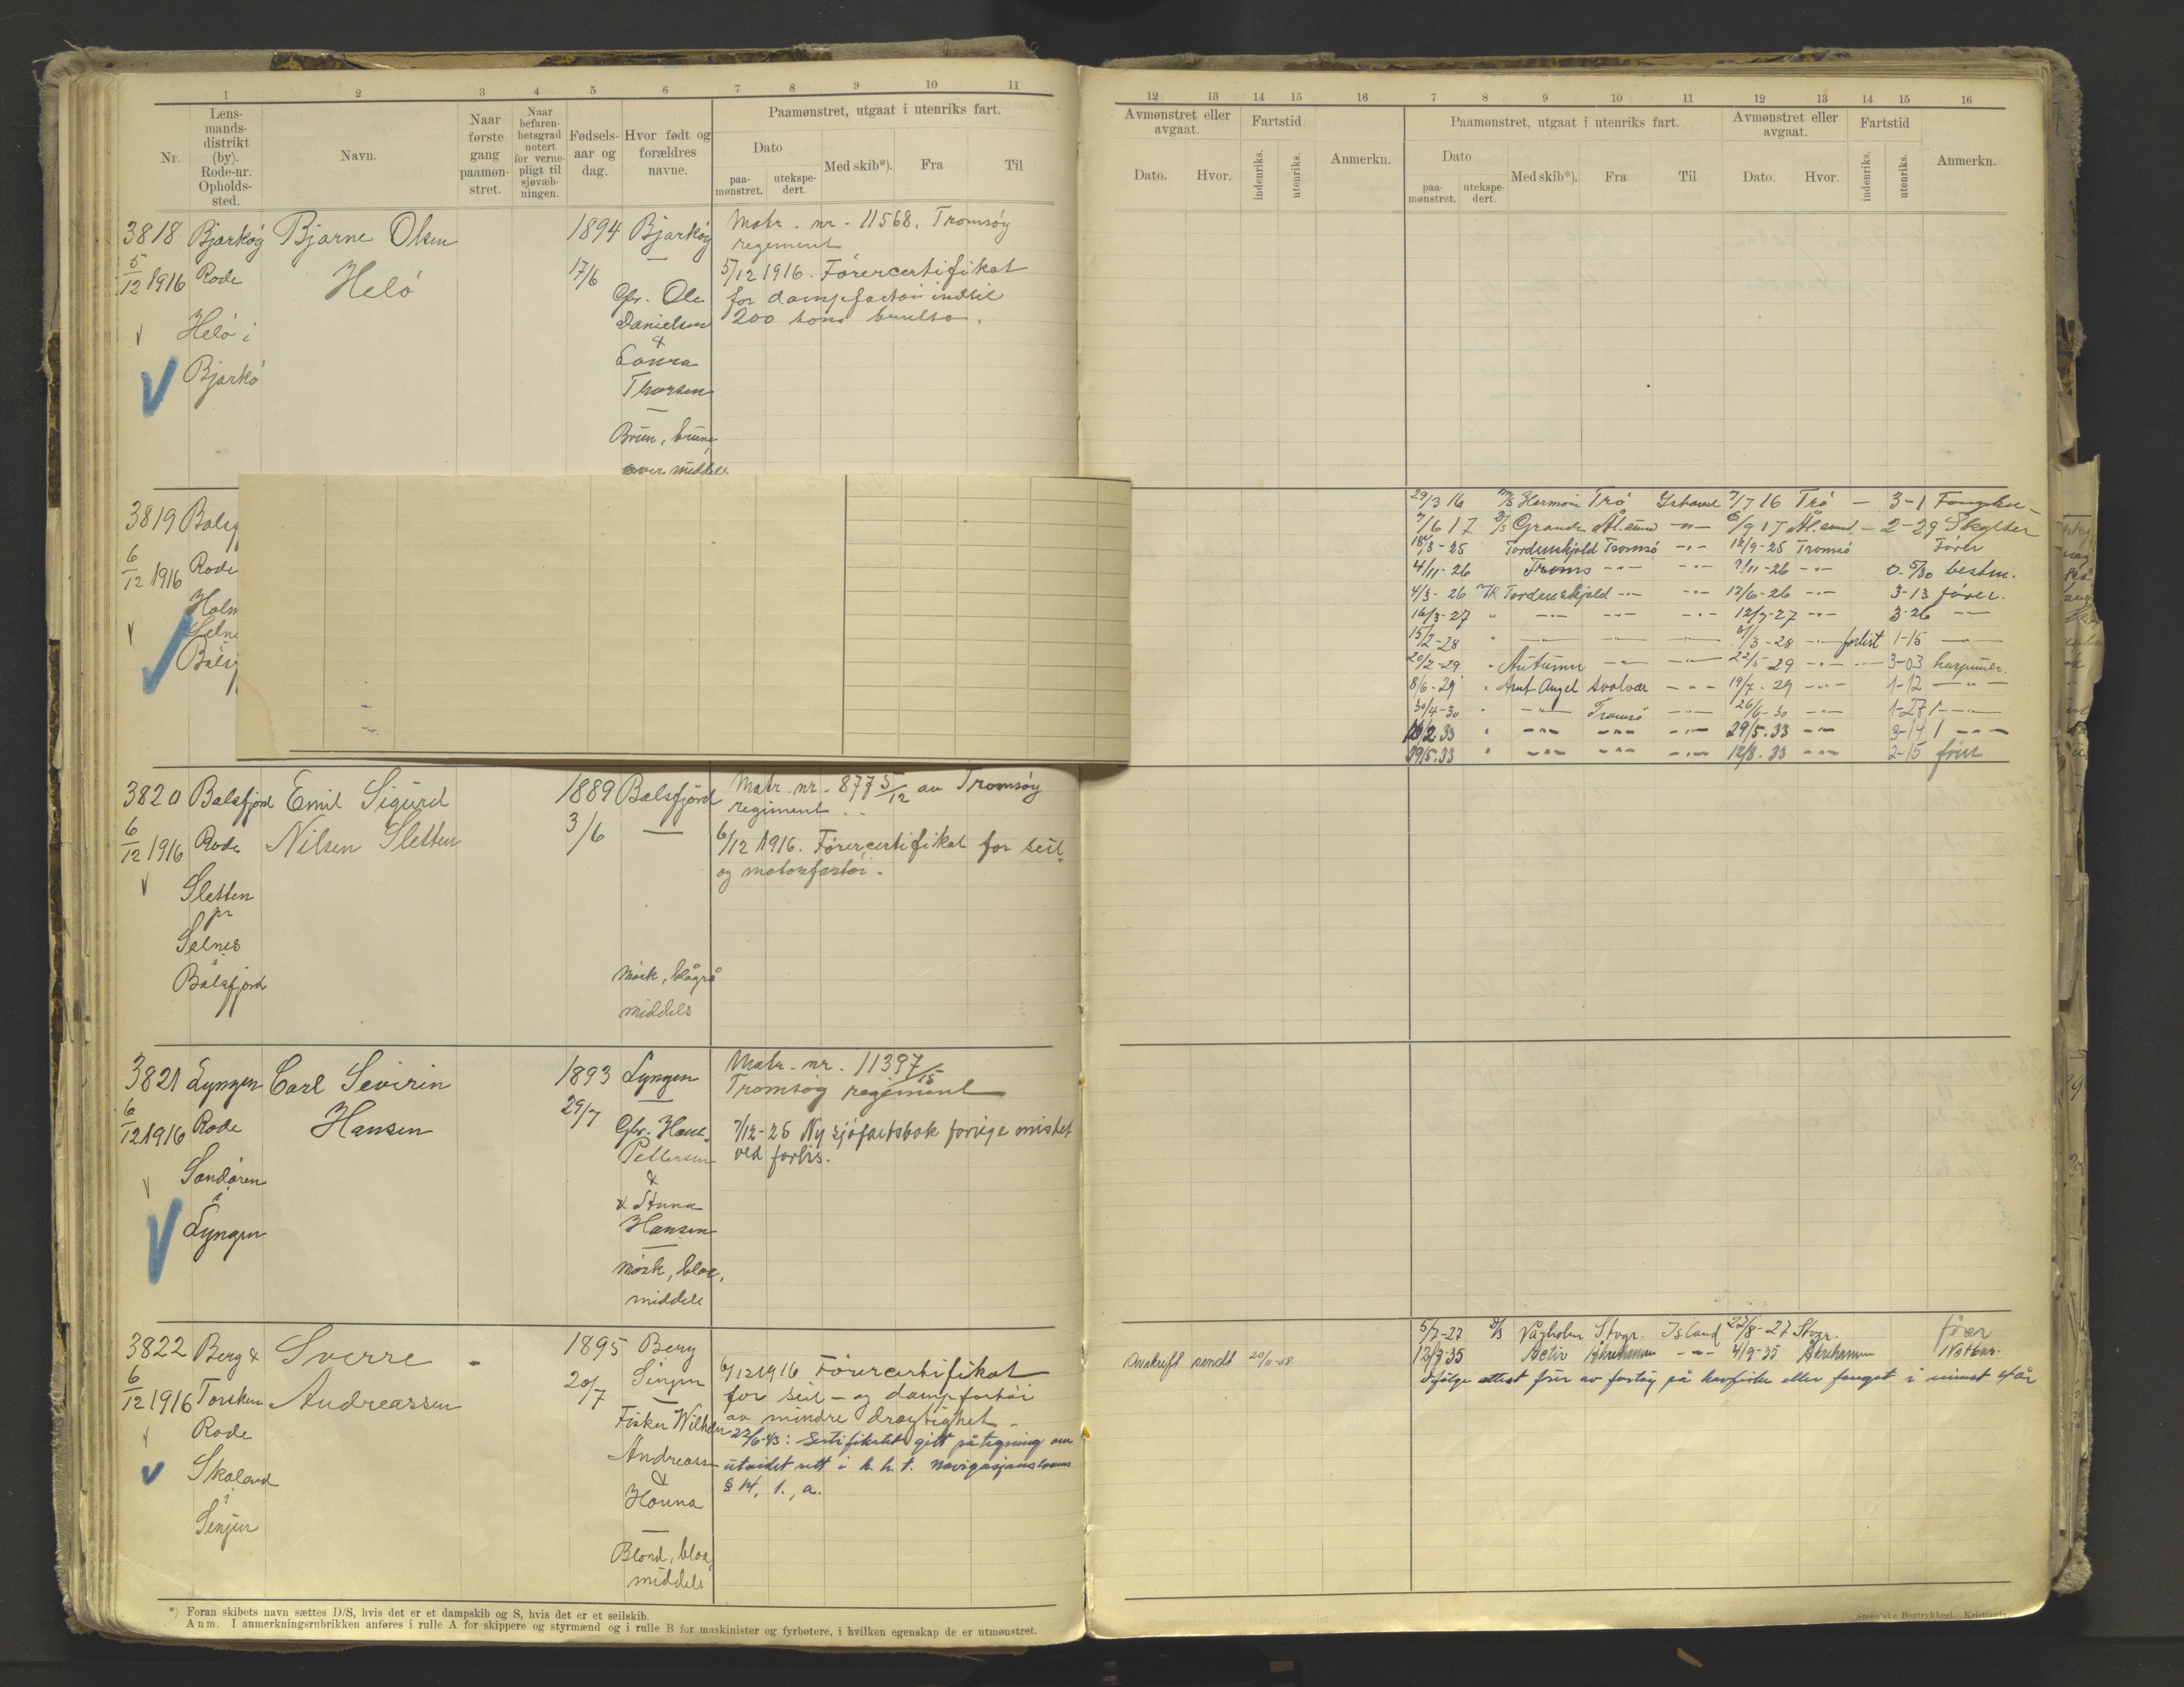 1 2 3 4 5 6 7 8 9 10 11
Nr.
Lens-
mands-
distrikt
(by).
Rode-nr.
Opholds-
sted.
Navn.
Naar
første
gang
paamøn-
stret.
Naar
befaren-
hetsgrad
notert
for verne-
pligt til
sjøvæb-
ningen.
Fødsels-
aar og
dag.
Hvor født og
forældres
navne.
Paamønstret, utgaat i utenriks fart.
Dato
paa-
mønstret.
utekspe-
dert.
Med skib*).
Fra
Til
3818 Bjarkøy Bjarne Olsen 1894 Bjarkøy Matr. nr. 11568. Tromsøy
regement
5/12 1916 Rode Helø 17/6 5/12 1916. Førercertifikat
Gbr. Ole for dampfartøi indtil
Danielsen 200 tons brutto.
Helø i
&
Bjarkø
Thorsen
Brun, brune
over middels
3819
6/12 1916 Rode
3820 Balsfjord Emil Sigurd 1889 Balsfjord Matr. nr. 877 5/12 av Tromsøy
regiment
6/12 1916 Rode Nilsen Sletten 3/6 6/12 1916. Førercertifikat for seil-
og motorfartøi.
Sletten
pr
Selnes
i
Balsfjord
Mørk, blågrå
middels
3821 Lyngen Carl Severin 1893 Lyngen Matr. nr. 11397/15
Tromsøy regiment
6/12 1916 Rode Hansen 29/7 Gbr. Hans 7/12-25 Ny sjøfartsbok forrige mistet
Pettersen ved forlis.
Sandøren
i
Lyngen
&
Hansen
Mørk, blaa,
middels
3822 Berg & Sverre 1895 Berg
6/12 1916 Torsken Andreassen 20/7 Senjen 6/12 1916 Førercertifikat
for seil- og dampfartøi
Rode Fisker Wilhelm av mindre drægtighet.
22/6-43: Sertifikatet gitt påtegning om
Skaland Andreassen utvidet rett i h.h.t. Navigasjonslovens
& § 14, 1., a.
i
Senjen
Hanna
Blond, blaa,
middels
*) Foran skibets navn sættes D/S, hvis det er et dampskib og S, hvis det er et seilskib.
Anm. I anmerkningsrubrikken anføres i rulle A for skippere og styrmænd og i rulle B for maskinister og fyrbøtere, i hvilken egenskap de er utmønstret.
12 13 14 15 16 7 8 9 10 11 12 13 14 15 16
Avmønstret eller
avgaat.
Dato. Hvor.
Fartstid
indenriks. utenriks.
Anmerkn.
Paamønstret, utgaat i utenriks fart.
Dato
paa-
mønstret.
utekspe-
dert.
Med skib*). Fra Til
Avmønstret eller
avgaat.
Dato. Hvor.
Fartstid
indenriks. utenriks.
Anmerkn.
29/3 16 M/S Harmoni Trø Ishavet 7/7 16 Trø - 3-1
7/6 17 Grande Ål.sund -"- 6/9 17 Ål.sund - 2-29 Skytter
18/3-25 Tordenskjold Tromsø -"- 12/9-25 Tromsø Fører
4/11-26 Troms -"- -"- 9/11-26 -"- 0-5/30 bestm.
4/3-26 M/K Tordenskjold -"- -"- 17/6-26 -"- 3-13 fører.
16/3-27 " -"- -"- -"- 12/7-27 -"- 3-26 -"-
15/2-28 " -"- -"- -"- /3-28 -"- forlist 1-15 -"-
20/2-29 " Autumn -"- -"- 22/5-29 -"- 3-03 harpuner.
8/6-29 " Arnt Angel Svolvær -"- 19/7-29 -"- 1-12 -"-
30/4-30 " -"- Tromsø -"- 26/6-30 -"- 1-27 -"-
2 33 " -"- -"- -"- 29/5.33 -"- 3-14 -"-
29/5.33 " -"- -"- -"- 12/8.33 -"- 2-15 fører
Avskrift sendt 20/11-58
5/7-27 Vågholm Stvgr. Island 22/8-27 Stvgr. fører
12/7-35 Activ Åkrehamn -"- 4/9-35 Åkrehamn Notbas.
Ifølge attest fører av fartøy på havfiske eller fangst i minst 4 år
Steen'ske Bogtrykkeri, Kristiania